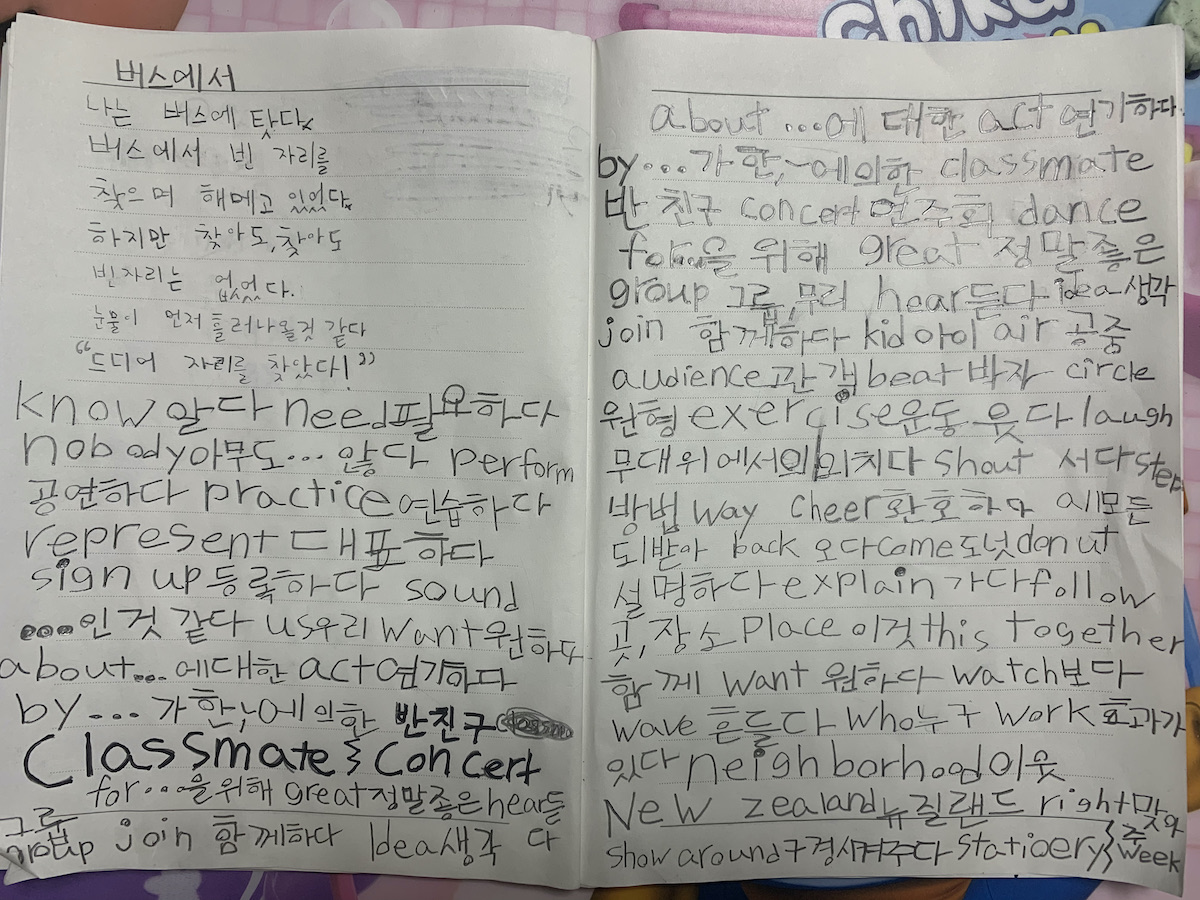 chika
버스에서
나는 버스에 탓다
버스에서 빈 자리를
찾으며 해메고 있었다
하지만 찾아도, 찾아도
빈자리는 없었다.
눈물이 먼저 흘러나올것 같다
"드디어 자리를 찾았다!"
know 알다 need 필요하다
nobody 아무도... 않다 perform
공연하다 practice 연습하다
represent 대표하다
sign up 등록하다 sound
...인 것 같다 us우리 want 원하다
about... 에대한 act 연기하다
by... 가한,~에의한 반친구
Classmate concert
for...을위해 great 정말좋은 hear 듣
그룹
group join 함께하다 Idea 생각 다
about ...에 대한 act 연기하다.
by...가 한,~에의한 classmate
반 친구 concert 연주회 dance
for...을 위해 great 정말좋은
group 그룹,무리 hear 듣다 idea 생각
join 함께하다 kid 아이 air 공중
audience 관객 beat 박자 circle
원형 exercise 운동 웃다 laugh
무대위에서의 외치다 shout 서다 step
방법 way cheer 환호하다 all 모든
되받아 back 오다 come 도넛 donut
설명하다 explain 가다 follow
곳,장소 place 이것 this together
함께 want 원하다 watch 보다
wave 흔들다 who 누구 work 효과가
있다 neighborhood 이웃
New zealand 뉴질랜드 right 맞아
show around 구경시켜주다 statioery 주
week